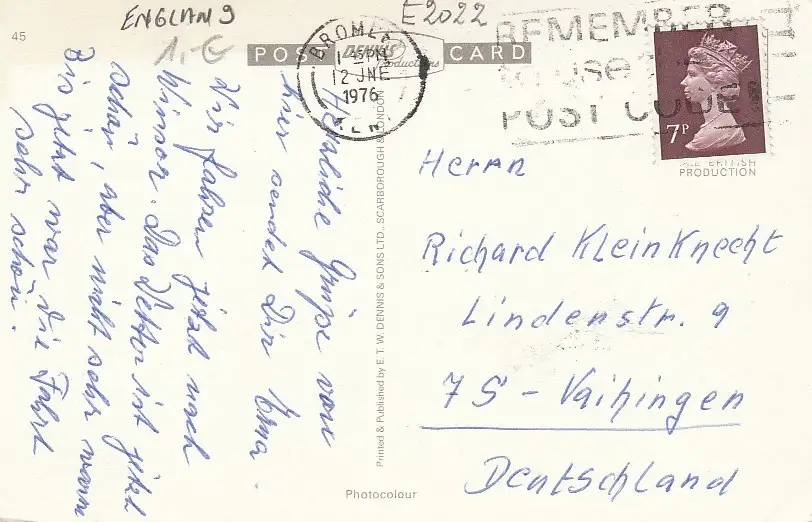 ENGLAND
E2022
45
1.-€
POST CARD
DENNIS
Productions
BROMLEY
1-45PM
12 JNE
1976
KENT
REMEMBER
to use the
POST CODE
7P
ALL BRITISH
PRODUCTION
Herzliche Grüße von
hier sendet Dir Oma.
Wir fahren jetzt nach
Winsor. Das Wetter ist jetzt
schön, aber nicht sehr warm
Bis jetzt war die Fahrt
sehr schön.
Printed & Published by E. T. W. DENNIS & SONS LTD., SCARBOROUGH & LONDON
Herrn
Richard Kleinknecht
Lindenstr. 9
7S - Vaihingen
Deutschland
Photocolour